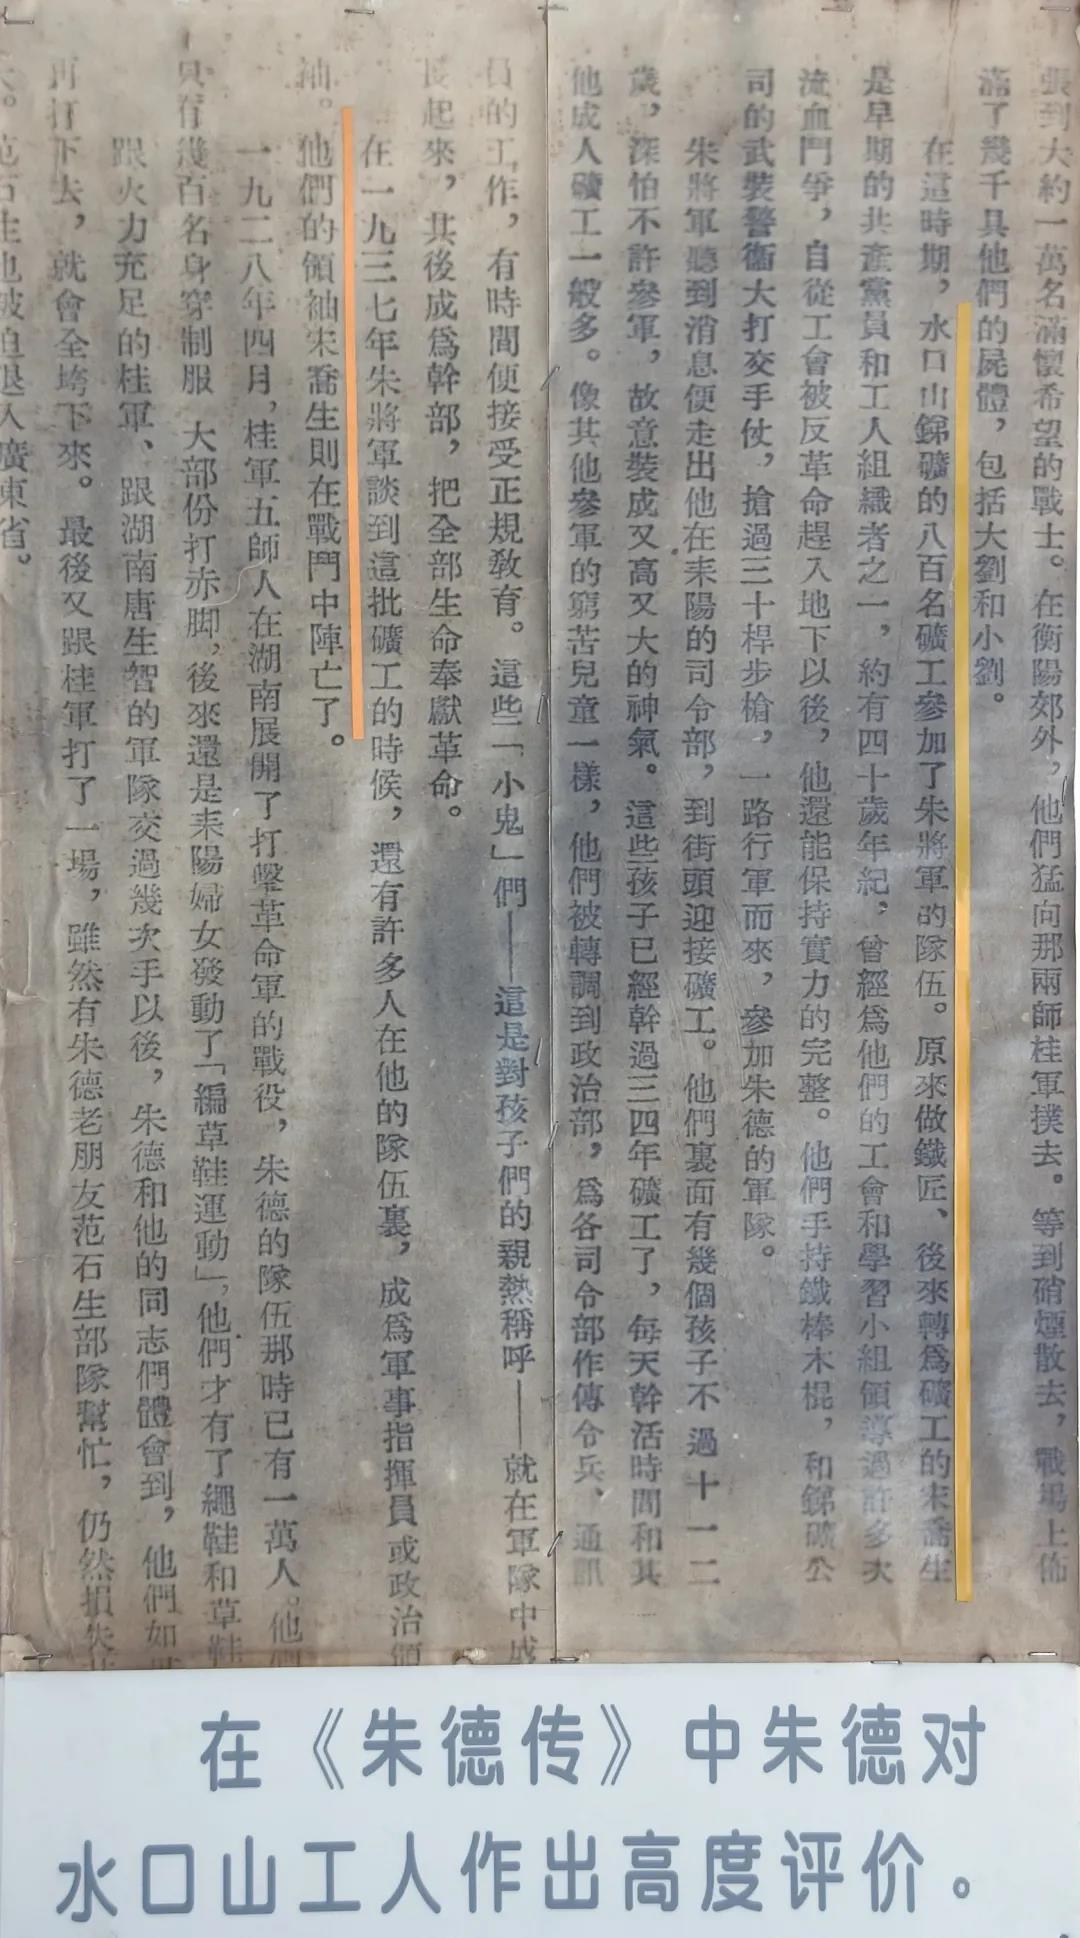 張到大約一萬名滿懷希望的戰士。在衡陽郊外，他們猛向那兩師桂軍撲去。等到硝煙散去，戰場上佈
滿了幾千具他們的屍體，包括大劉和小劉。
在這時期，水口山銻礦的八百名礦工參加了朱將軍的隊伍。原來做鐵匠、後來轉爲礦工的宋喬生
是早期的共產黨員和工人組織者之一，約有四十歲年紀，曾經爲他們的工會和學習小組領導過許多次
流血鬥爭，自從工會被反革命趕入地下以後，他還能保持實力的完整。他們手持鐵棒木棍，和銻礦公
司的武裝警衞大打交手仗，搶過三十桿步槍，一路行軍而來，參加朱德的軍隊。
朱將軍聽到消息便走出他在耒陽的司令部，到街頭迎接礦工。他們裏面有幾個孩子不過十一二
歲，深怕不許參軍，故意裝成又高又大的神氣。這些孩子已經幹過三四年礦工了，每天幹活時間和其
他成人礦工一般多。像其他參軍的窮苦兒童一樣，他們被轉調到政治部，爲各司令部作傳令兵、通訊
員的工作，有時間便接受正規敎育。這些「小鬼」們——這是對孩子們的親熱稱呼——就在軍隊中成
長起來，其後成爲幹部，把全部生命奉獻革命。
在一九三七年朱將軍談到這批礦工的時候，還有許多人在他的隊伍裏，成爲軍事指揮員或政治領
袖。他們的領袖宋喬生則在戰鬥中陣亡了。
一九二八年四月，桂軍五師人在湖南展開了打擊革命軍的戰役，朱德的隊伍那時已有一萬人。他們
只有幾百名身穿制服 大部份打赤脚，後來還是耒陽婦女發動了「編草鞋運動」，他們才有了繩鞋和草鞋
跟火力充足的桂軍、跟湖南唐生智的軍隊交過幾次手以後，朱德和他的同志們體會到，他們如
再打下去，就會全垮下來。最後又跟桂軍打了一場，雖然有朱德老朋友范石生部隊幫忙，仍然損失
范石生也被迫退入廣東省。
在《朱德传》中朱德对
水口山工人作出高度评价。